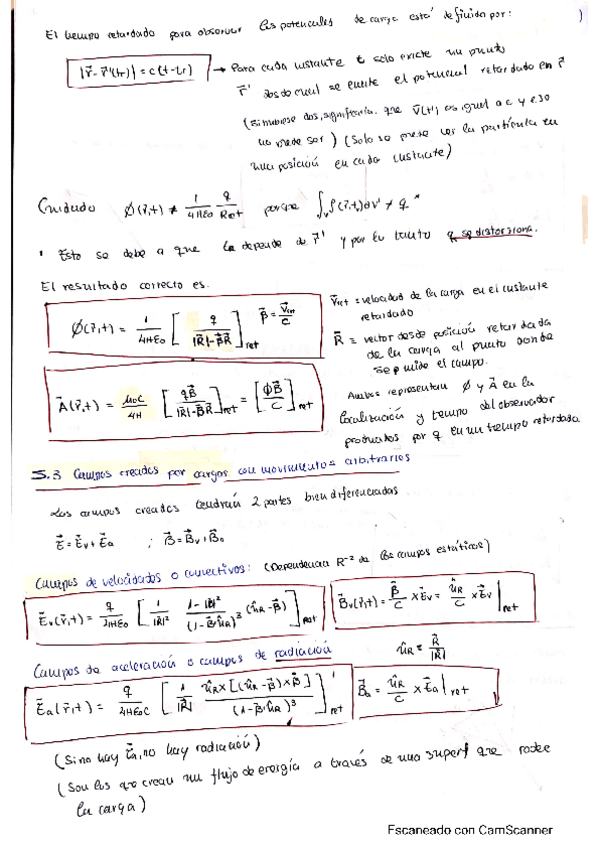 El tiempo retardado para observar los potenciales de carga está definida por:
|r⃗-r⃗'(tr)| = c(t-tr) → Para cada instante t solo existe un punto
r⃗' desde cual se emite el potencial retardado en r⃗
(si hubiese dos, significaría que v⃗(t') es igual a c y eso
no puede ser) (Solo se puede ver la partícula en
una posición en cada instante)
Cuidado ϕ(r⃗,t) ≠ 1/4πε₀ q/Rret porque ∫ᵥ ρ(r⃗,t)dv' ≠ q
Esto se debe a que tr depende de r⃗' y por lo tanto q se distorsiona.
El resultado correcto es.
ϕ(r⃗,t) = 1/4πε₀ [q/|R⃗|-β⃗R⃗]ret β⃗ = v⃗ret/c
v⃗ret = velocidad de la carga en el instante
retardado
R⃗ = vector desde posición retardada
de la carga al punto donde
se mide el campo.
A⃗(r⃗,t) = μ₀c/4π [qβ⃗/|R⃗|-β⃗R⃗]ret = [ϕβ⃗/c]ret
Ambos representan ϕ y A⃗ en la
localización y tiempo del observador
producidos por q en un tiempo retardado.
5.3 Campos creados por cargas con movimientos arbitrarios
Los campos creados tendrán 2 partes bien diferenciadas
E⃗ = E⃗v + E⃗a ; B⃗ = B⃗v + B⃗a
Campos de velocidades o convectivos: (Dependencia R⁻² de los campos estáticos)
E⃗v(r⃗,t) = q/4πε₀ [1/|R⃗|² 1-|β⃗|²/(1-β⃗·ûR)³ (ûR-β⃗)]ret B⃗v(r⃗,t) = β⃗/c × E⃗v = ûR/c × E⃗v|ret
Campos de aceleración o campos de radiación ûR = R⃗/|R⃗|
E⃗a(r⃗,t) = q/4πε₀c [1/|R⃗| ûR×[(ûR-β⃗)×β⃗]/(1-β⃗·ûR)³]ret B⃗a = ûR/c × E⃗a|ret
(Si no hay a⃗, no hay radiación)
(Son los que crean un flujo de energía a través de una superf que rodee
la carga)
Escaneado con CamScanner